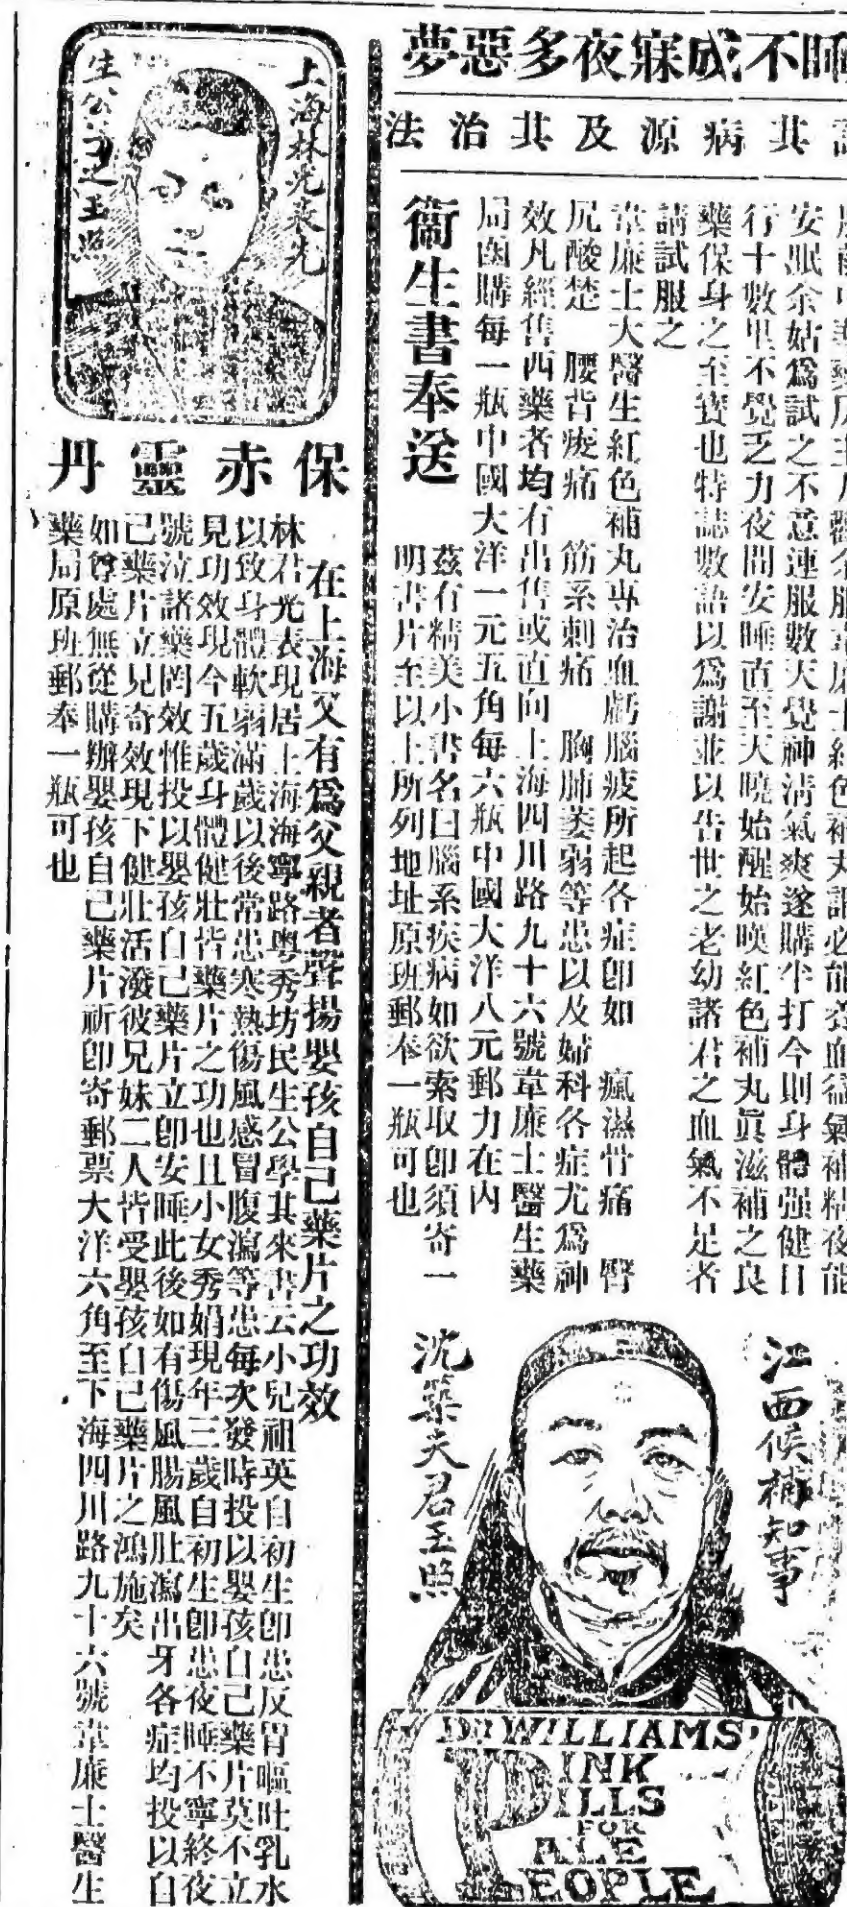 睡不成寐夜多惡夢
其病源及其治法
安眠余姑爲試之不意連服數天覺神清氣爽遂購半打今則身體强健日
行十數里不覺乏力夜間安睡直至天曉始醒始嘆紅色補丸眞滋補之良
藥保身之至寶也特誌數語以爲謝並以告世之老幼諸君之血氣不足者
請試服之
韋廉士大醫生紅色補丸專治血虧腦疲所起各症卽如 瘋濕骨痛 腎
尻酸楚 腰背痠痛 筋系刺痛 胸肺萎弱等患以及婦科各症尤爲神
效凡經售西藥者均有出售或直向上海四川路九十六號韋廉士醫生藥
局函購每一瓶中國大洋一元五角每六瓶中國大洋八元郵力在內
衞生書奉送
茲有精美小書名曰腦系疾病如欲索取卽須寄一
明書片至以上所列地址原班郵奉一瓶可也
江西候補知事
沈築夫君玉照
DR WILLIAMS'
PINK
PILLS
FOR
PALE
PEOPLE
上海林光表先
生公子之玉照
保赤靈丹
在上海又有爲父親者聲揚嬰孩自己藥片之功效
林君光表現居上海海寧路粤秀坊民生公學其來書云小兒祖英自初生卽患反胃嘔吐乳水
以致身體軟弱滿歲以後常患寒熱傷風感冒腹瀉等患每次發時投以嬰孩自己藥片莫不立
見功效現今五歲身體健壯皆藥片之功也且小女秀娟現年三歲自初生卽患夜睡不寧終夜
號泣諸藥罔效惟投以嬰孩自己藥片立卽安睡此後如有傷風腸風肚瀉出牙各症均投以自
己藥片立見奇效現下健壯活潑彼兄妹二人皆受嬰孩自己藥片之鴻施矣
如尊處無從購辦嬰孩自己藥片祈卽寄郵票大洋六角至下海四川路九十六號韋廉士醫生
藥局原班郵奉一瓶可也